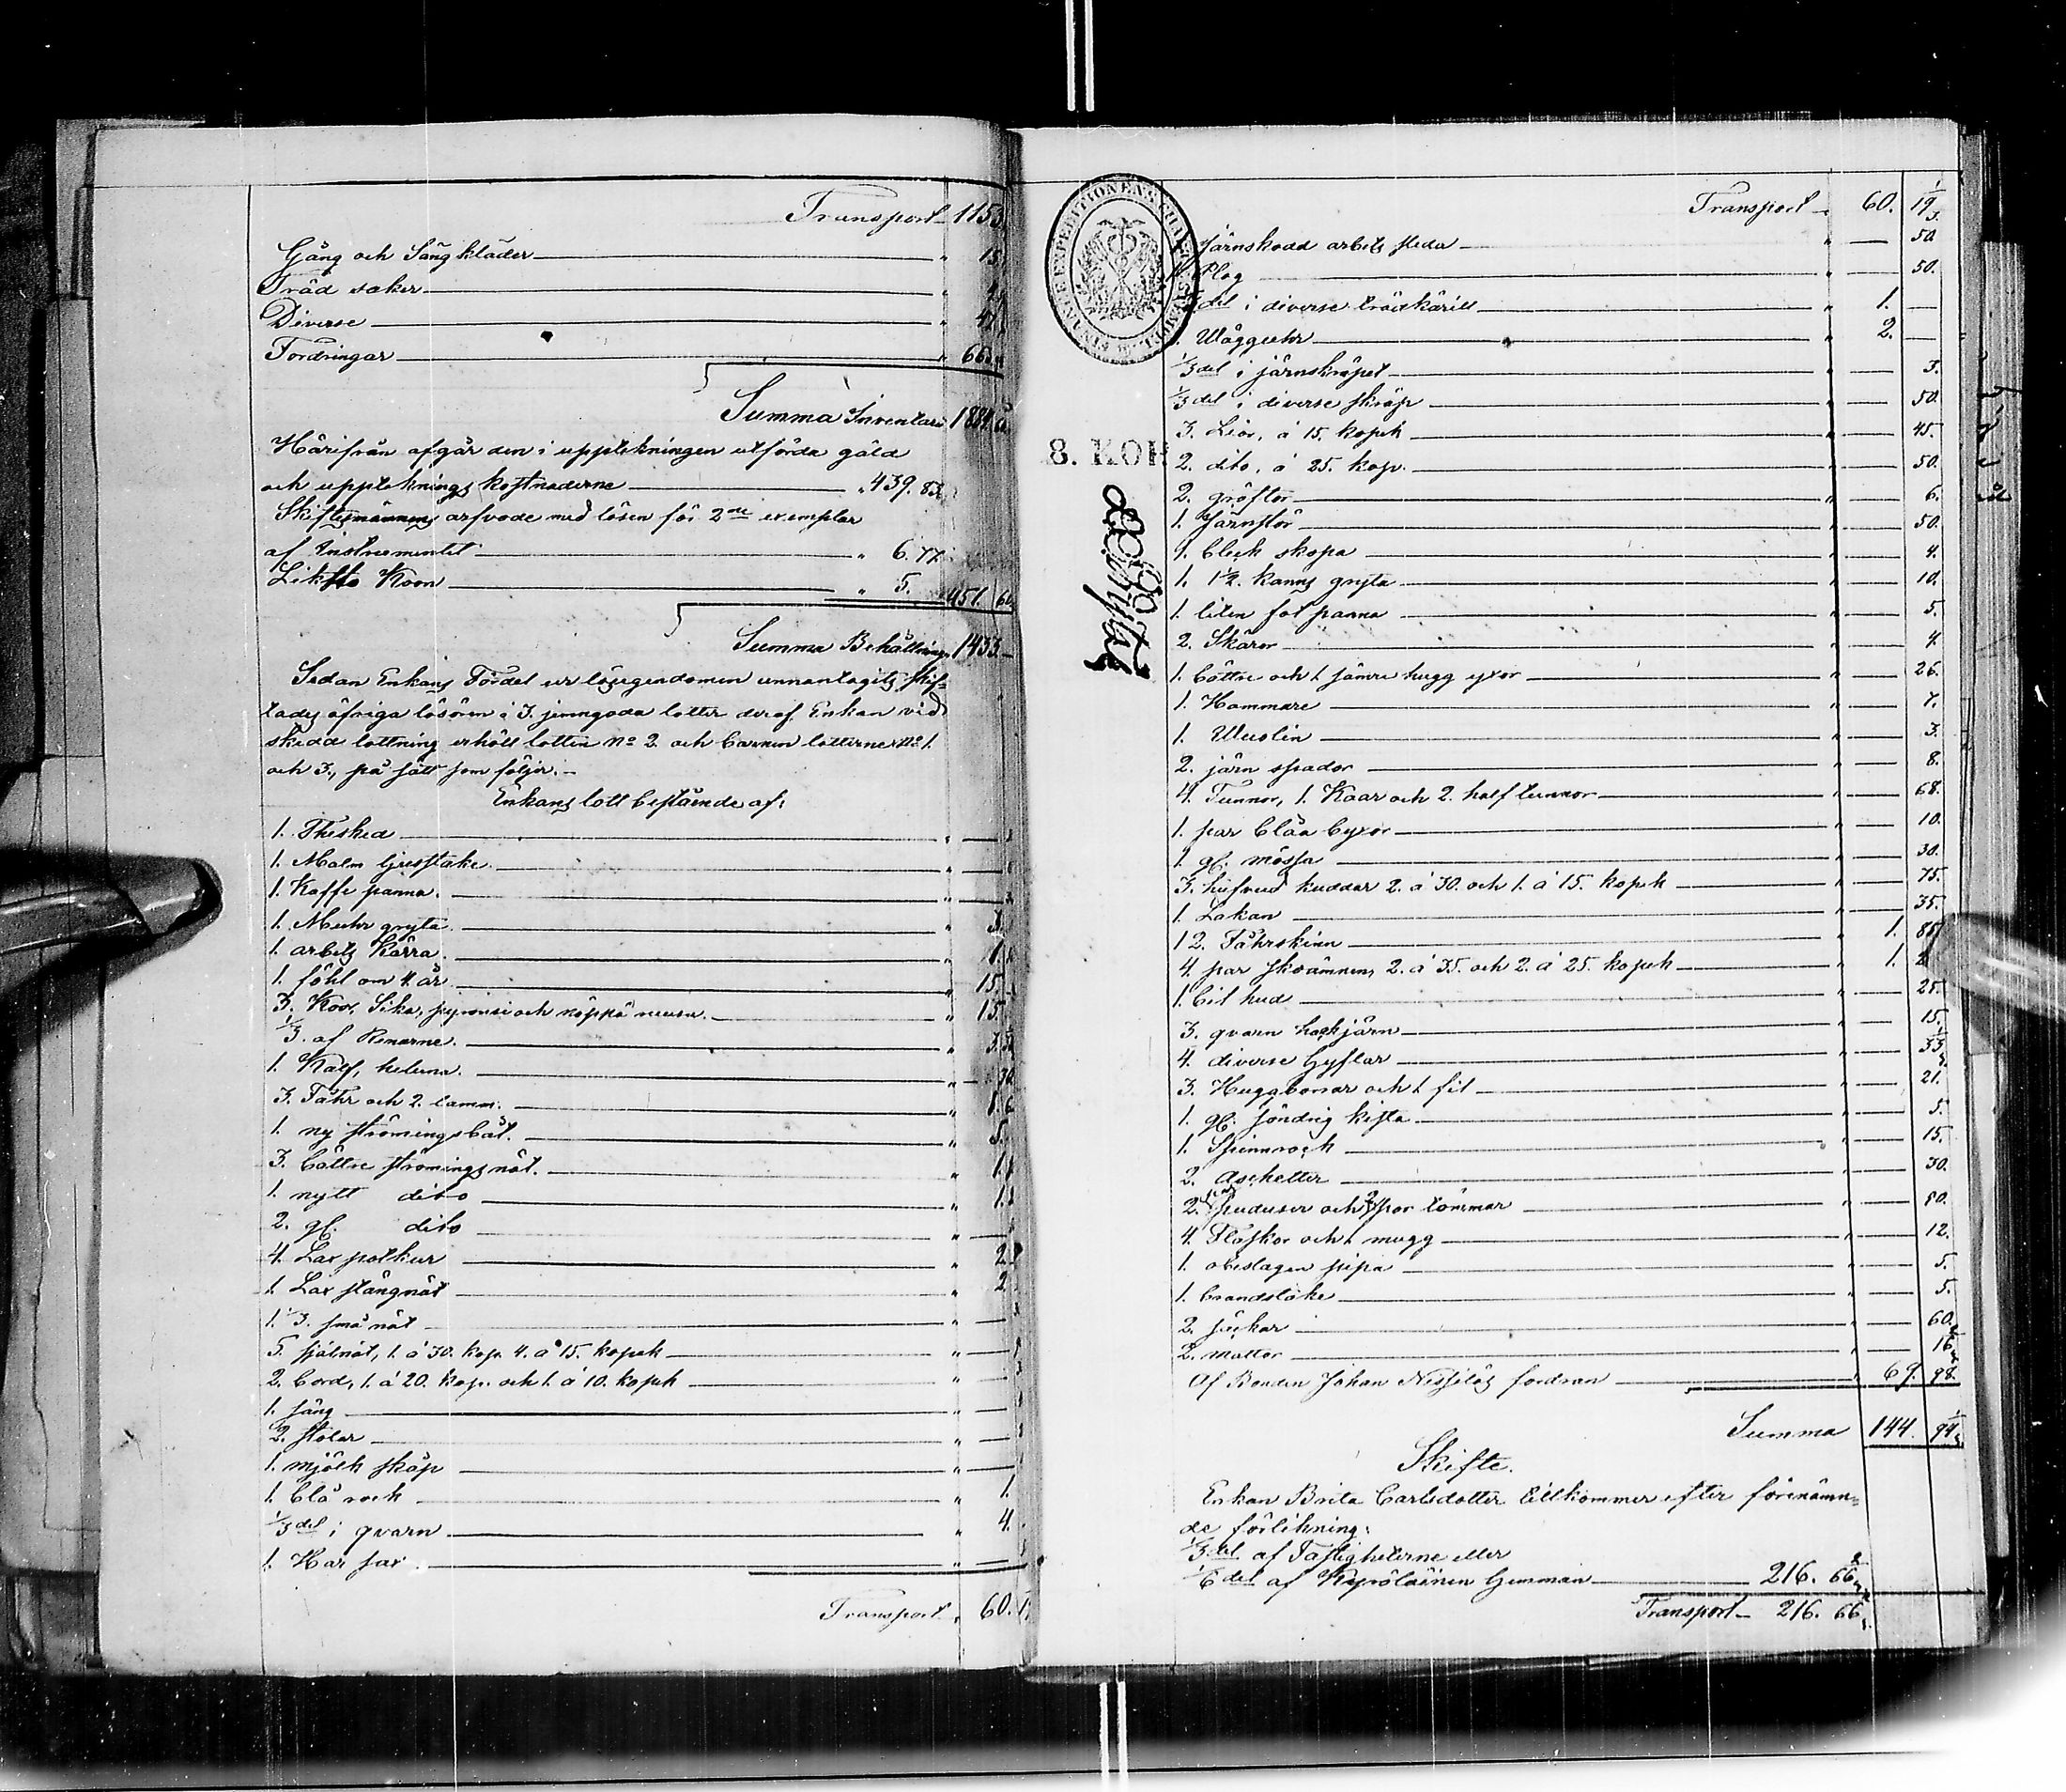 Transport 1153
Gång och Sängkläder " 15
Träd saker "
Diverse " 41
Fordringar " 66
Summa Inventarii 1884
Härifrån afgår den i uppteckningen utförda gäld
och uppteknings kostnaderne " 439. 83
Skiftesmännens arfvode med lösen för 2ne exemplar
af Instrumentet " 6. 77
Liksto Koon " 5. 451. 60
Summa Behållning 1433.
Sedan Enkans Fördel ur lösegendomen unnantagits skif-
tades öfriga lösören i 3. jemngoda lotter deraf Enkan vid
skedd lottning erhöll lotten No 2. och barnen lotterne No 1.
och 3., på sätt som följer.
Enkans lott bestående af:
1. Thesked "
1. Malm ljusstake "
1. Kaffe panna. "
1. Muhr gryta. " 3.
1. arbets Kärra. " 1.
1. föhl om 4. år " 15.
3. Kor, Sika, pyronsi och " 15.
1/3. af Renarne. " 3.
1. Kalf, heluna. " 30
3. Fåhr och 2. lamm. " 1.
1. ny strömingsbåt. " 5.
3. bättre strömings nät. " 1.
1. nytt dito " 1.
2. gl. dito "
4. Lax potkur " 2
1. Lax stångnät " 2
1. 1/3. små nät "
5. sjålnät, 1. á 30. kop. 4. á 15. kopek "
2. bord, 1. á 20. kop. och 1. á 10. kopek "
1. säng "
2. stolar "
1. mjölk skåp "
1. blå rock " 1.
1/3 del i qvarn " 4.
1. Har sax "
Transport " 60.
EXPEDITIONENS
8. KOP
Transport " 60. 19 1/3.
Järnskodd arbets släda " 50
1. Plog " 50.
1/3 del i diverse trädkärill " 1.
1. Wäggurhr " 2.
1/3 del i järnskräpet " 3.
1/3 del i diverse skräp " 50.
3. Liar, á 15. kopek " 45.
2. dito, á 25. kop. " 50.
2. gröftor " 6.
1. Järnstör " 50.
1. bleck skopa " 4.
1. 1 1/2. kanns gryta " 10.
1. liten fot panna " 5.
2. Skäror " 4.
1. bättre och 1. sämre hugg yxor " 26.
1. Hammare " 7.
1. Wuolin " 3.
2. järn spador " 8.
4. Tunnor, 1. Kaar och 2. half tunnor " 68.
1. par blåa byxor " 10.
1. gl. mössa " 30.
3. hufvud kuddar 2. á 30. och 1. á 15. kopek " 75.
1. Lakan " 35.
12. Fåhrskinn " 1. 85
4. par skoämnen, 2. á 35. och 2. á 25. kopek " 1. 2
1. bit hud " 25.
3. qvarn hackjärn " 15.
4. diverse hyflar " 33 1/3.
3. Huggborrar och 1. fil " 21.
1. gl. söndrig kista " 5.
1. Spinnrock " 15.
2. Aschetter " 30.
2. puduser och 2 par tömmar " 80.
4. Flaskor och 1. mugg " 12.
1. obeslagen pipa " 5.
1. brandstake " 5.
2. säckar " 60.
2. mattor " 16
Af Bonden Johan Nissilös fordran " 69. 98.
Summa 144. 94 1/3
Skifte.
Enkan Brita Carlsdotter tillkommer efter förenämn-
de förlikning:
1/3 del af Fastigheterne eller
1/6 del af Kyröläinen hemman 216. 66 2/3
Transport 216. 66 2/3